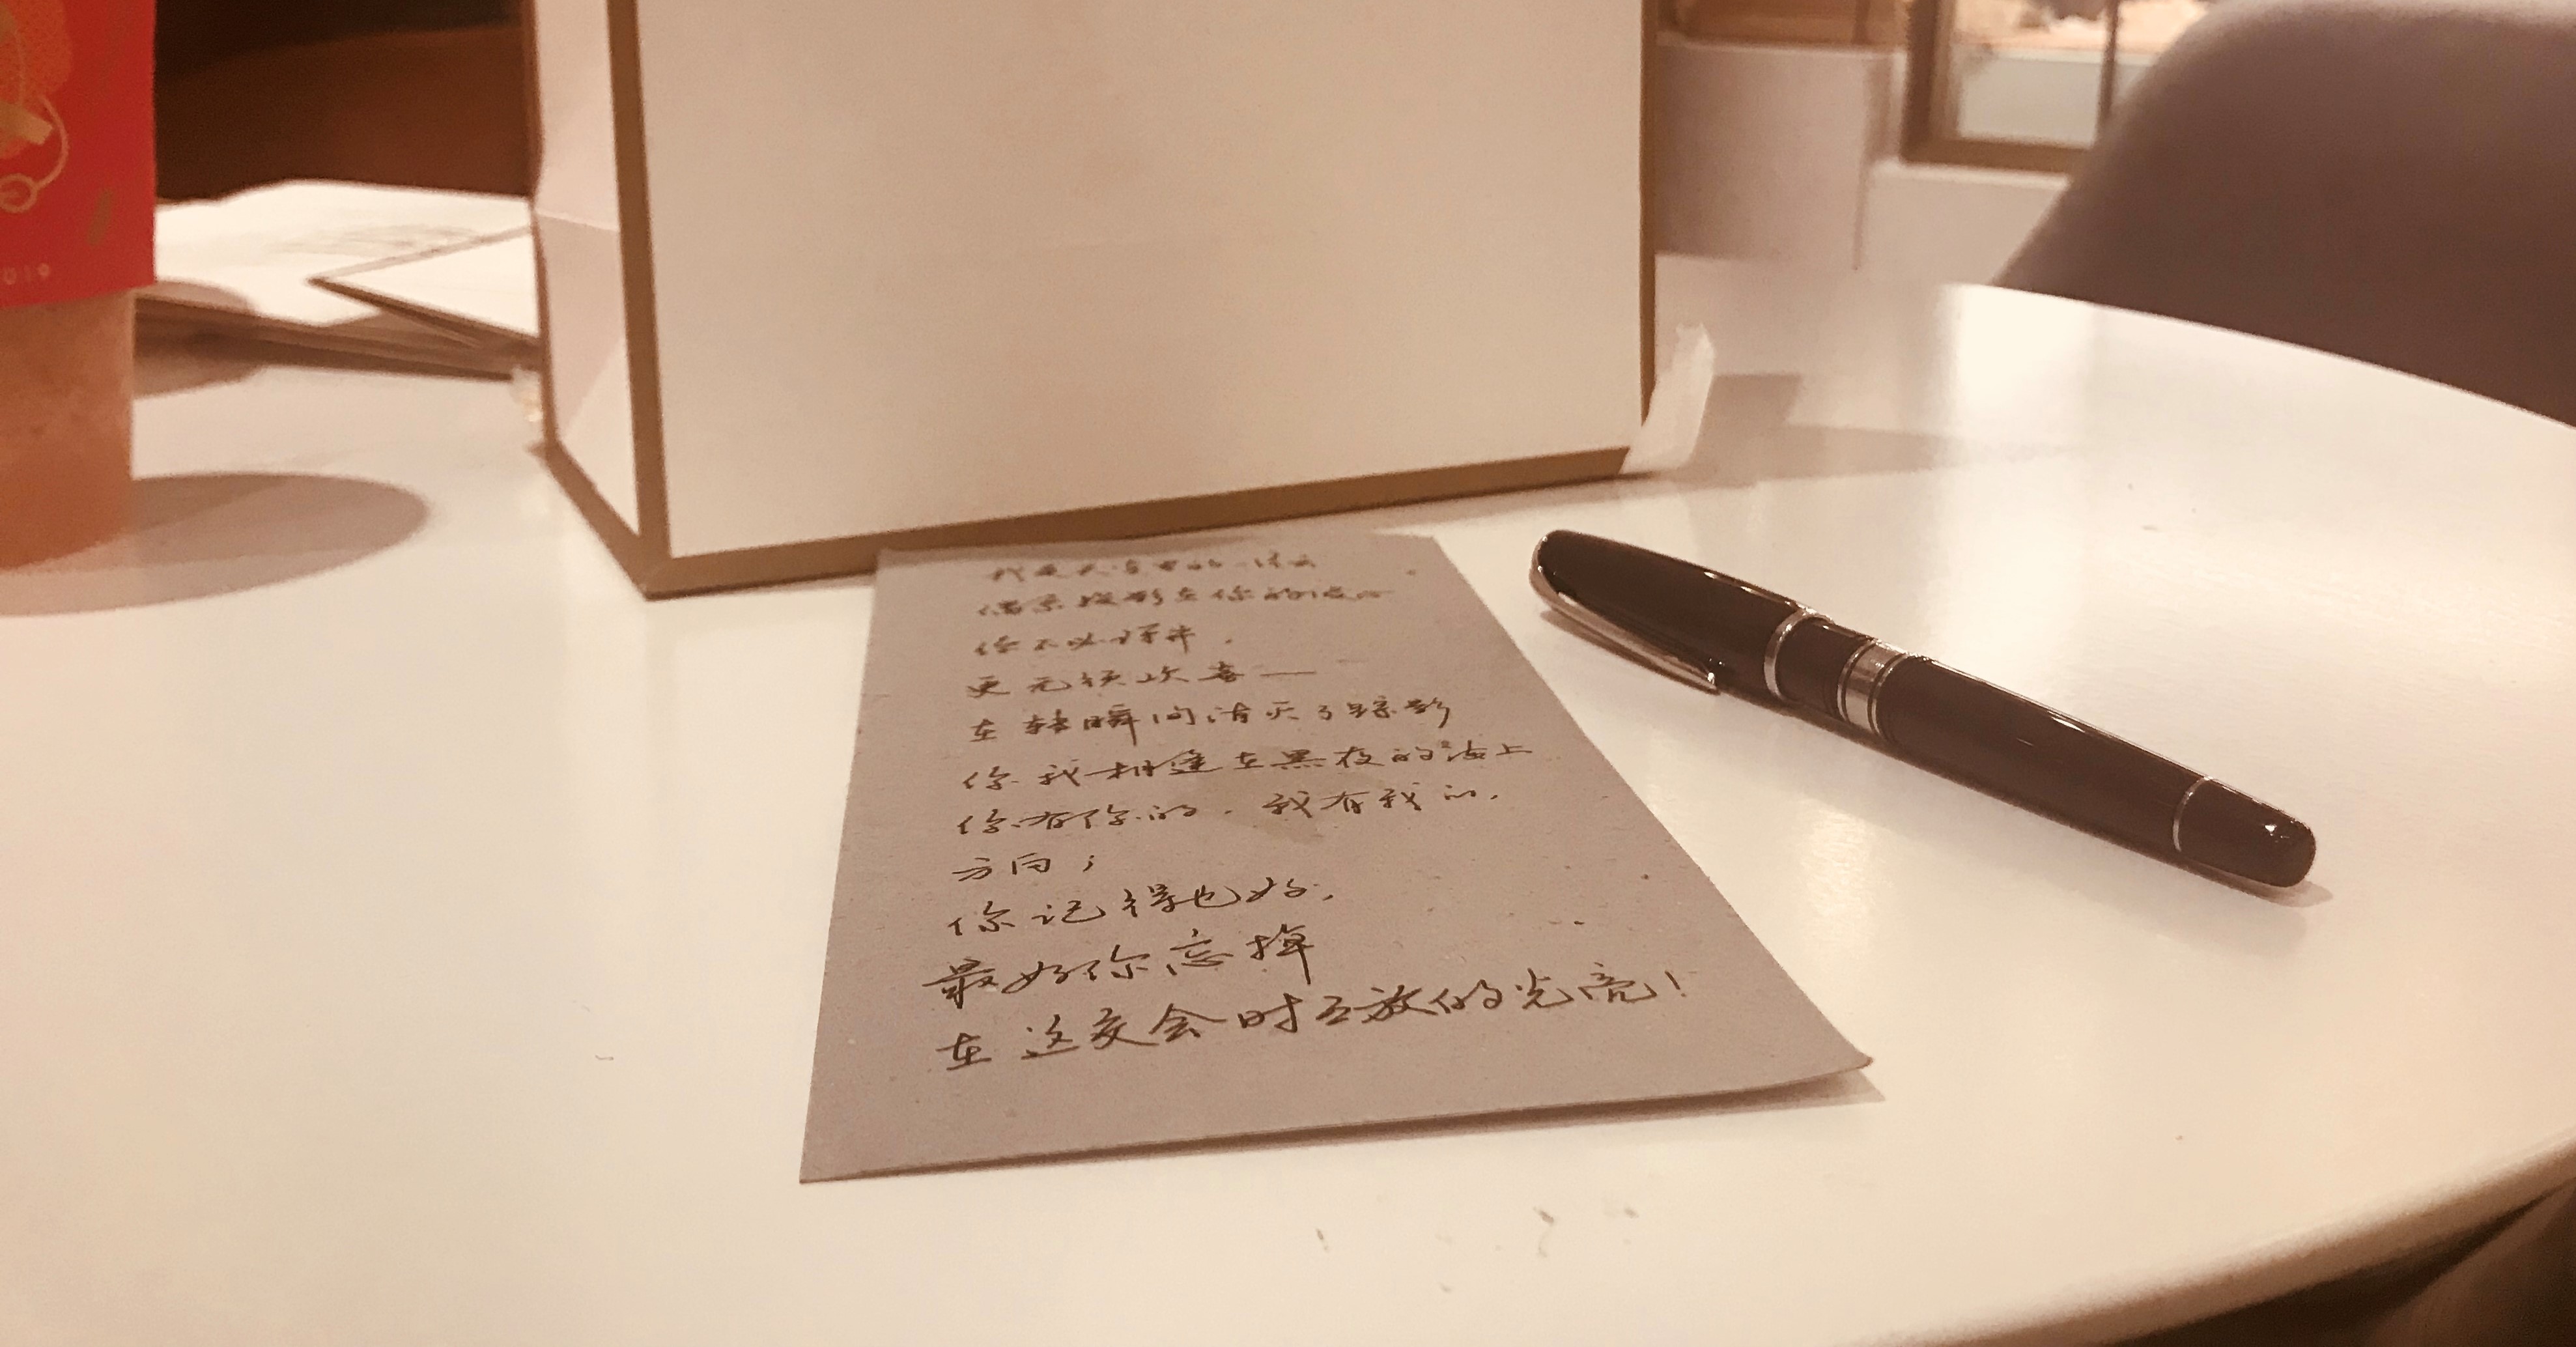 019
我是天空里的一片云
偶然投影在你的波心
你不必讶异，
更无须欢喜——
在转瞬间消灭了踪影
你我相逢在黑夜的海上
你有你的，我有我的，
方向；
你记得也好，
最好你忘掉
在这交会时互放的光亮！